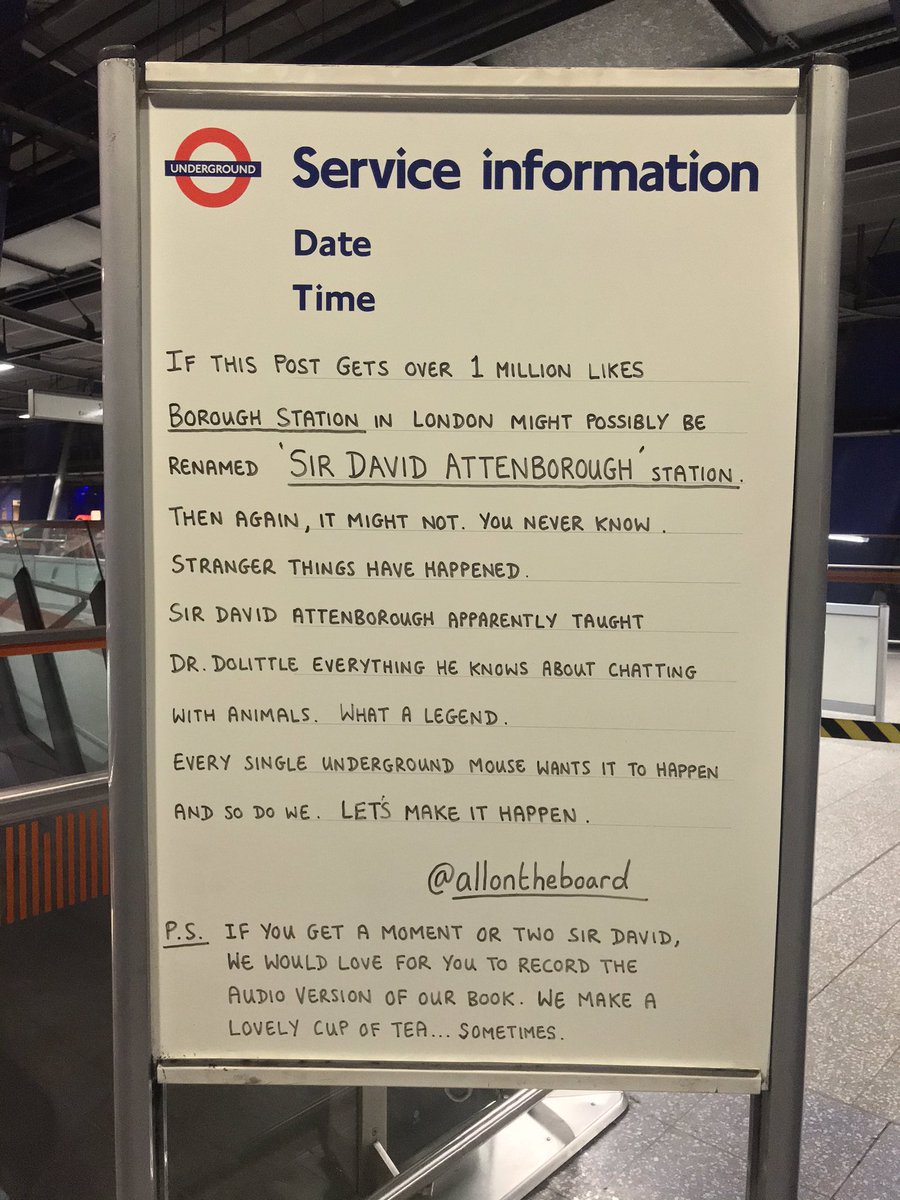 UNDERGROUND
Service information
Date
Time
IF THIS POST GETS OVER 1 MILLION LIKES
BOROUGH STATION IN LONDON MIGHT POSSIBLY BE
RENAMED 'SIR DAVID ATTENBOROUGH' STATION.
THEN AGAIN, IT MIGHT NOT. YOU NEVER KNOW.
STRANGER THINGS HAVE HAPPENED.
SIR DAVID ATTENBOROUGH APPARENTLY TAUGHT
DR. DOLITTLE EVERYTHING HE KNOWS ABOUT CHATTING
WITH ANIMALS. WHAT A LEGEND.
EVERY SINGLE UNDERGROUND MOUSE WANTS IT TO HAPPEN
AND SO DO WE. LET'S MAKE IT HAPPEN.
@allontheboard
P.S. IF YOU GET A MOMENT OR TWO SIR DAVID,
WE WOULD LOVE FOR YOU TO RECORD THE
AUDIO VERSION OF OUR BOOK. WE MAKE A
LOVELY CUP OF TEA... SOMETIMES.